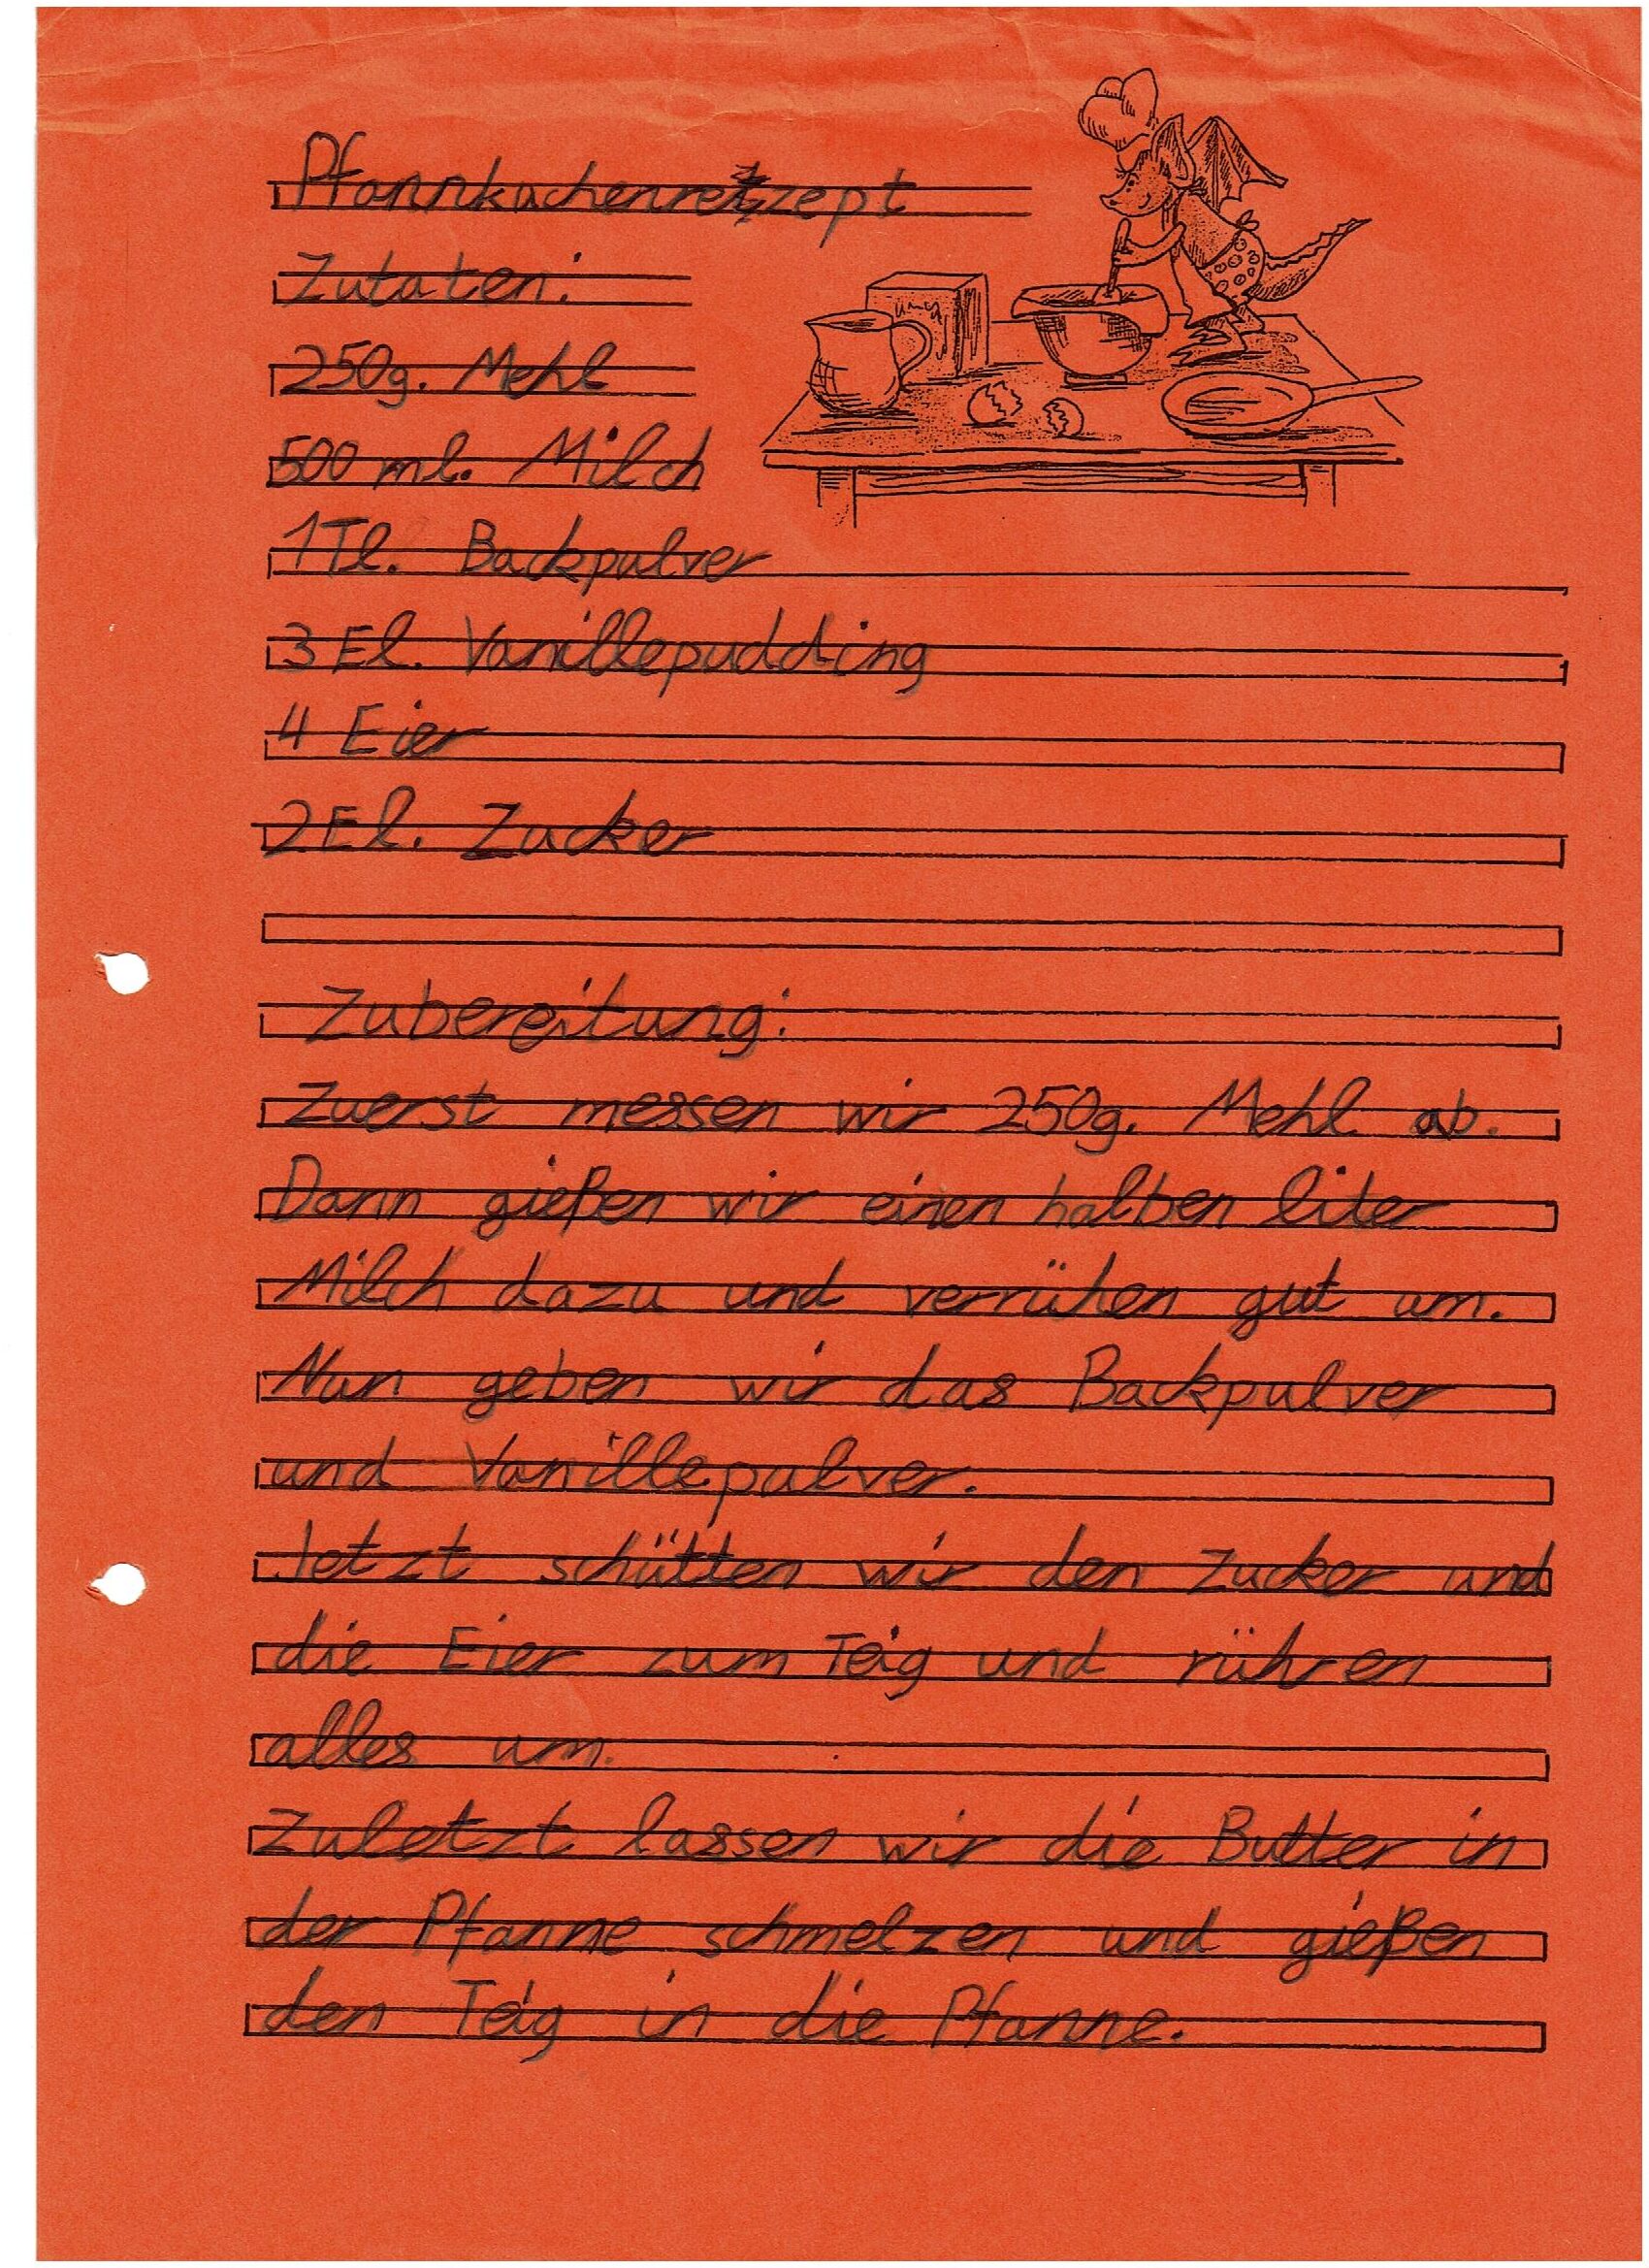 Pfannkuchenretzzept
Zutaten:
250g. Mehl
500 ml. Milch
1Tl. Backpulver
3 El. Vanillepudding
4 Eier
2 El. Zucker
Zubereitung:
Zuerst messen wir 250g. Mehl ab.
Dann gießen wir einen halben liter
Milch dazu und verrühen gut um.
Nun geben wir das Backpulver
und Vanillepulver.
Jetzt schütten wir den Zucker und
die Eier zum Teig und rühren
alles um.
Zuletzt lassen wir die Butter in
der Pfanne schmelzen und gießen
den Teig in die Pfanne.